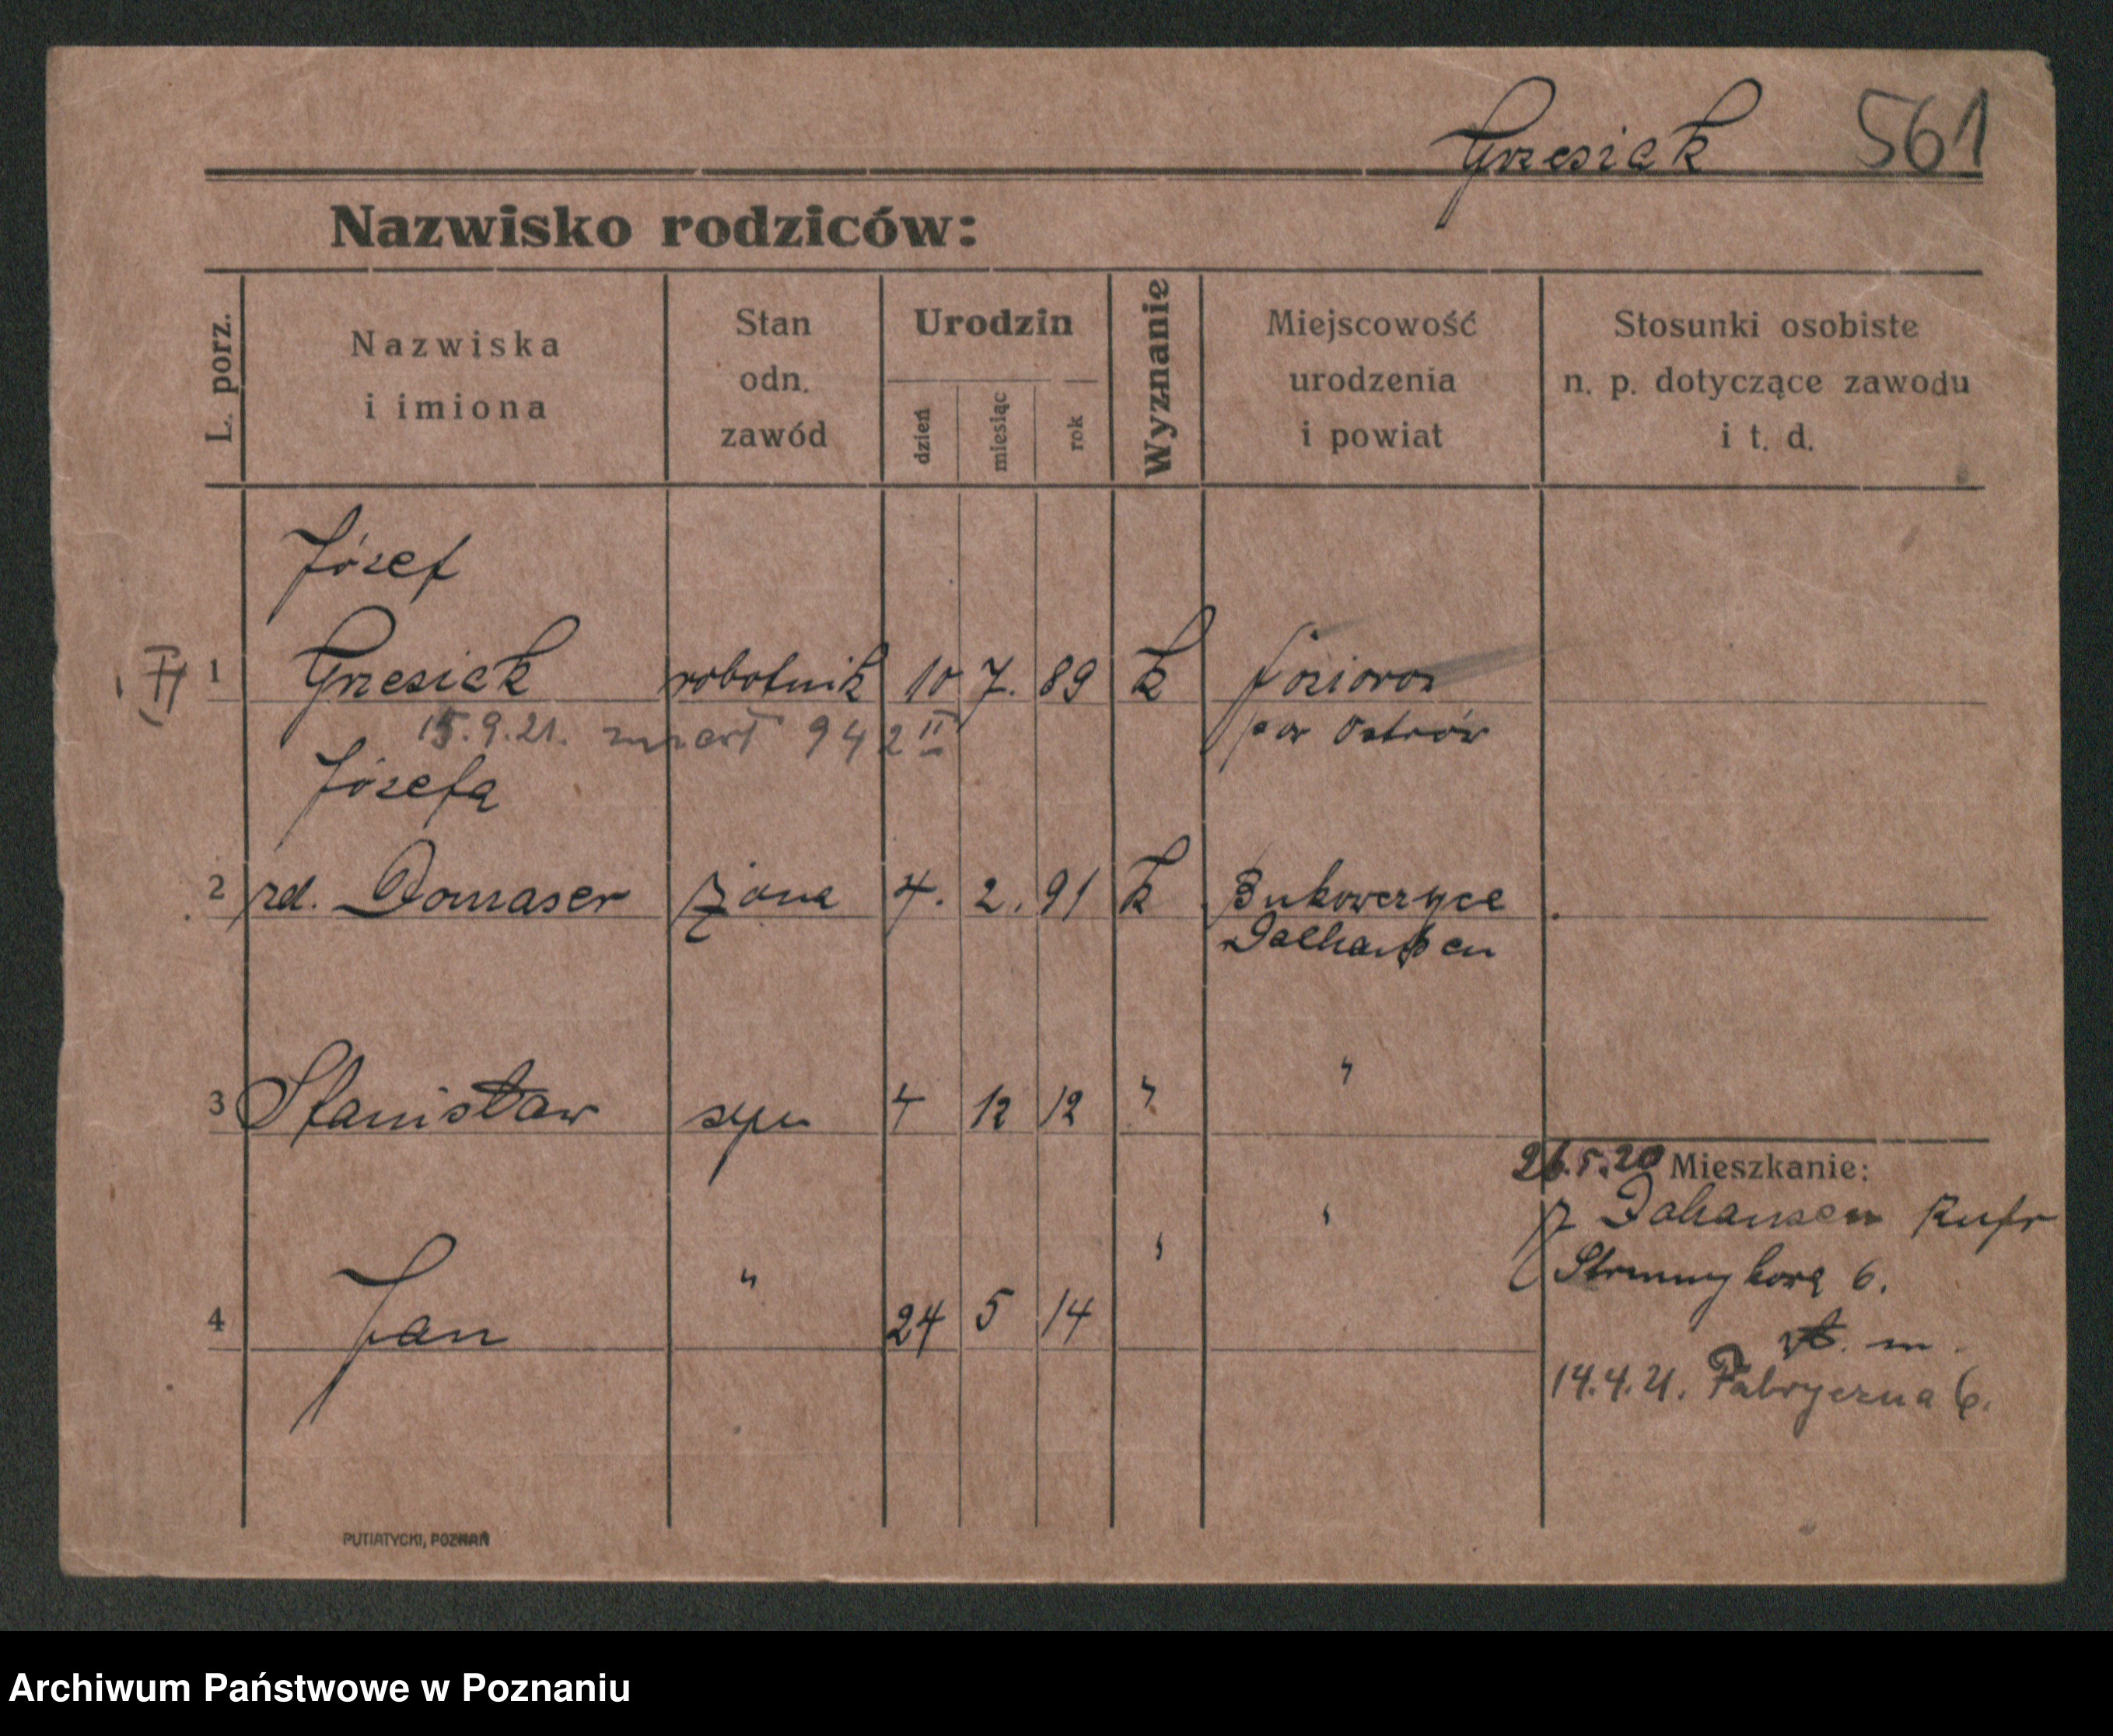 Grzesiak 561
Nazwisko rodziców:
L. porz.
Nazwiska
i imiona
Stan
odn.
zawód
Urodzin
dzień
miesiąc
rok
Wyznanie
Miejscowość
urodzenia
i powiat
Stosunki osobiste
n. p. dotyczące zawodu
i t. d.
Józef
1 Grzesiak robotnik 10 7. 89 k
15.9.21. zmarł 942 II
pow Ostrów
Józefa
2 rd. Domaser żona 4. 2. 91 k
3 Stanisław syn 4 12 12 " "
4 Jan " 24 5 14
26.5.20 Mieszkanie:
z
6.
14.4.21. Fabryczna 6.
PUTIATYCKI, POZNAŃ
Archiwum Państwowe w Poznaniu